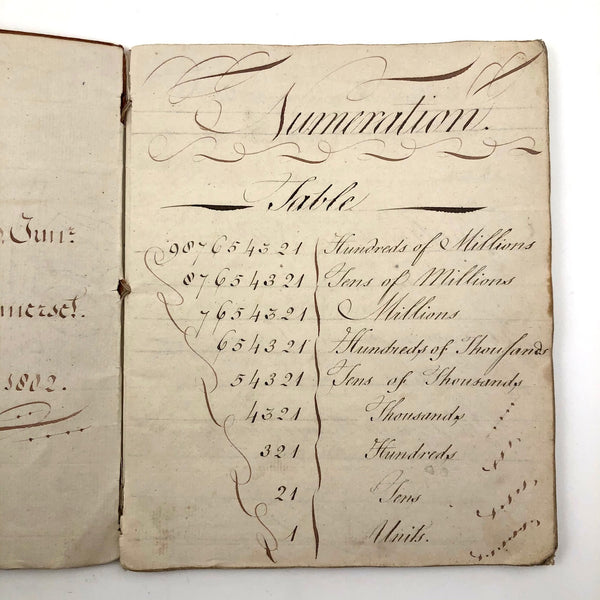 Junr.
1802.
Numeration.
Table
987654321 Hundreds of Millions
87654321 Tens of Millions
7654321 Millions
654321 Hundreds of Thousands
54321 Tens of Thousands
4321 Thousands
321 Hundreds
21 Tens
1 Units.